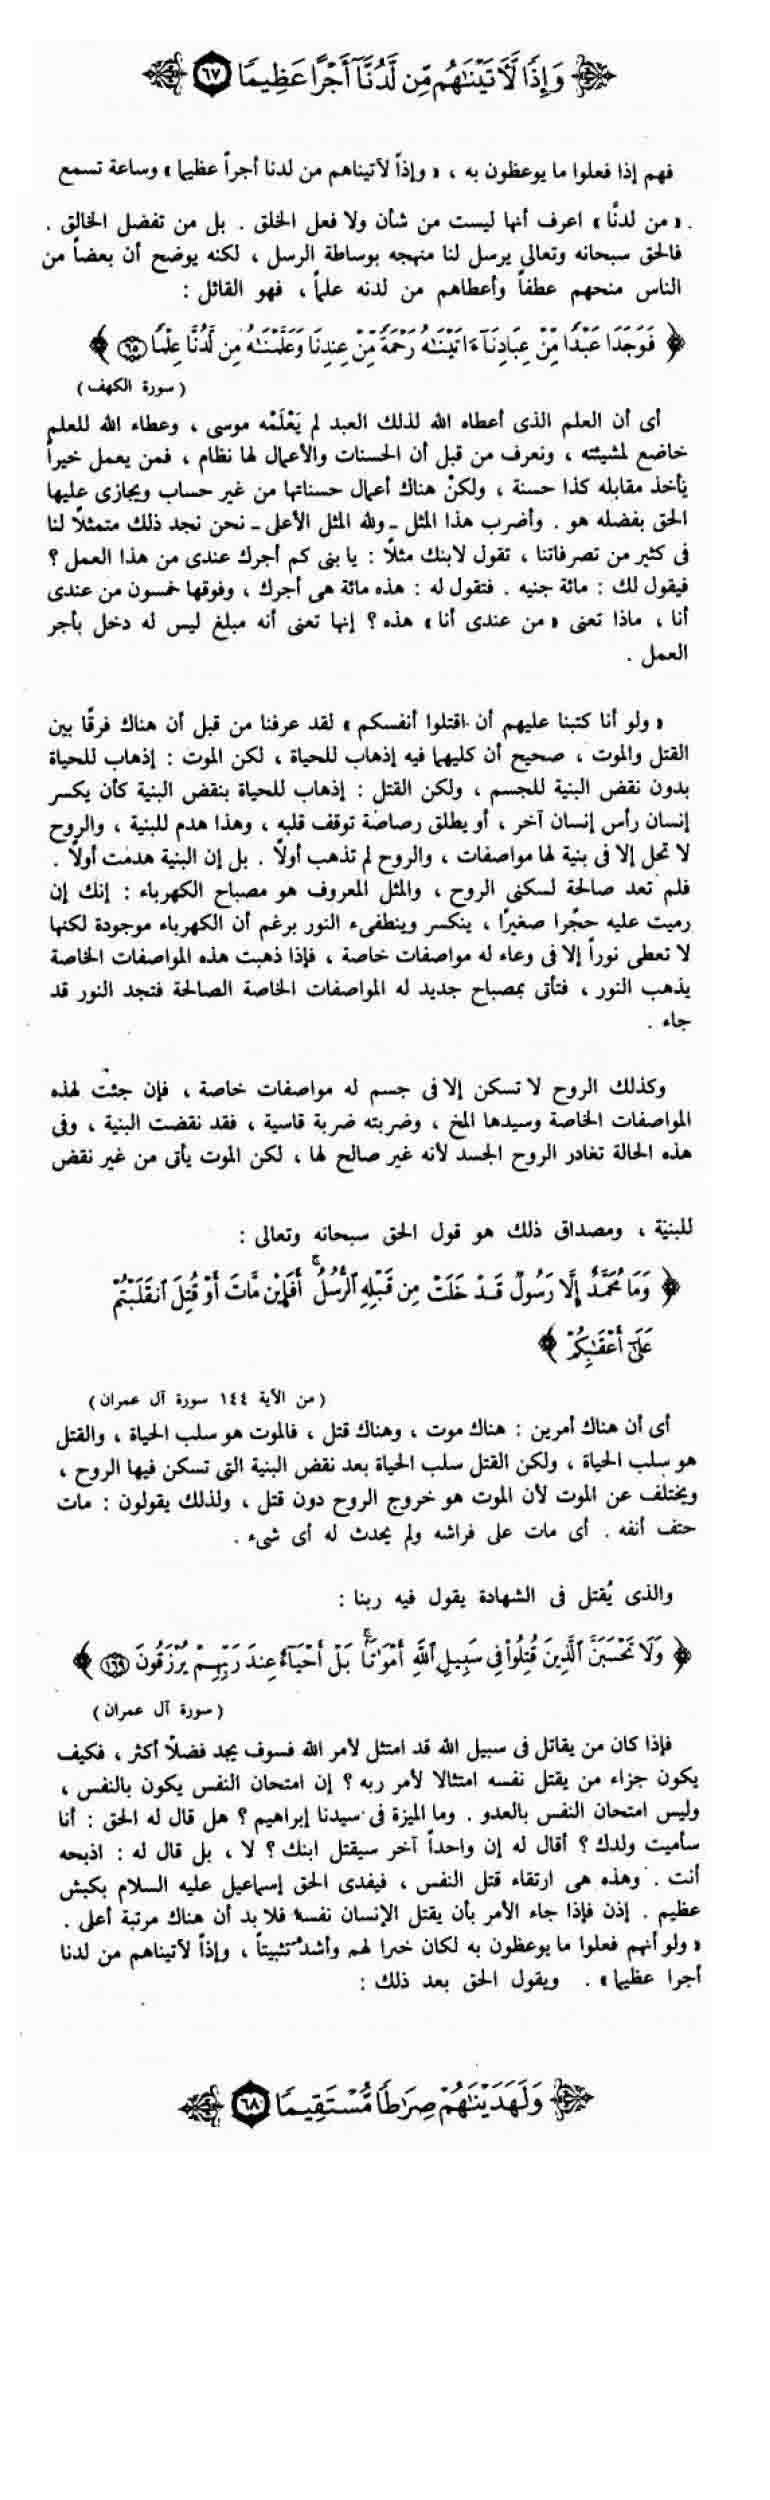 وَإِذًا لَّآتَيْنَاهُم مِّن لَّدُنَّآ أَجْرًا عَظِيمًا ٦٧
فهم إذا فعلوا ما يوعظون به ، « وإذاً لآتيناهم من لدنا أجراً عظيما » وساعة تسمع
« من لدنَّا » اعرف أنها ليست من شأن ولا فعل الخلق . بل من تفضل الخالق .
فالحق سبحانه وتعالى يرسل لنا منهجه بوساطة الرسل ، لكنه يوضح أن بعضاً من
الناس منحهم عطفاً وأعطاهم من لدنه علماً ، فهو القائل :
﴿ فَوَجَدَا عَبْدًا مِّنْ عِبَادِنَآ ءَاتَيْنَٰهُ رَحْمَةً مِّنْ عِندِنَا وَعَلَّمْنَٰهُ مِن لَّدُنَّا عِلْمًا ٦٥ ﴾
( سورة الكهف )
أى أن العلم الذى أعطاه الله لذلك العبد لم يَعْلَمْه موسى ، وعطاء الله للعلم
خاضع لمشيئته ، ونعرف من قبل أن الحسنات والأعمال لها نظام ، فمن يعمل خيراً
يأخذ مقابله كذا حسنة ، ولكنْ هناك أعمال حسناتها من غير حساب ويجازى عليها
الحق بفضله هو . وأضرب هذا المثل - ولله المثل الأعلى - نحن نجد ذلك متمثلاً لنا
فى كثير من تصرفاتنا ، تقول لابنك مثلاً : يا بنى كم أجرك عندى من هذا العمل ؟
فيقول لك : مائة جنيه . فتقول له : هذه مائة هى أجرك ، وفوقها خمسون من عندى
أنا ، ماذا تعنى « من عندى أنا » هذه ؟ إنها تعنى أنه مبلغ ليس له دخل بأجر
العمل .
« ولو أنا كتبنا عليهم أن اقتلوا أنفسكم » لقد عرفنا من قبل أن هناك فرقًا بين
القتل والموت ، صحيح أن كليهما فيه إذهاب للحياة ، لكن الموت : إذهاب للحياة
بدون نقض البنية للجسم ، ولكن القتل : إذهاب للحياة بنقض البنية كأن يكسر
إنسان رأس إنسان آخر ، أو يطلق رصاصة توقف قلبه ، وهذا هدم للبنية ، والروح
لا تحل إلا فى بنية لها مواصفات ، والروح لم تذهب أولاً . بل إن البنية هدمت أولاً .
فلم تعد صالحة لسكنى الروح ، والمثل المعروف هو مصباح الكهرباء : إنك إن
رميت عليه حجًرا صغيرًا ، ينكسر وينطفىء النور برغم أن الكهرباء موجودة لكنها
لا تعطى نوراً إلا فى وعاء له مواصفات خاصة ، فإذا ذهبت هذه المواصفات الخاصة
يذهب النور ، فتأتى بمصباح جديد له المواصفات الخاصة الصالحة فتجد النور قد
جاء .
وكذلك الروح لا تسكن إلا فى جسم له مواصفات خاصة ، فإن جئت لهذه
المواصفات الخاصة وسيدها المخ ، وضربته ضربة قاسية ، فقد نقضت البنية ، وفى
هذه الحالة تغادر الروح الجسد لأنه غير صالح لها ، لكن الموت يأتى من غير نقض
للبنية ، ومصداق ذلك هو قول الحق سبحانه وتعالى :
﴿ وَمَا مُحَمَّدٌ إِلَّا رَسُولٌ قَدْ خَلَتْ مِن قَبْلِهِ ٱلرُّسُلُ ۚ أَفَإِيْن مَّاتَ أَوْ قُتِلَ ٱنقَلَبْتُمْ
عَلَىٰٓ أَعْقَٰبِكُمْ ﴾
( من الآية ١٤٤ سورة آل عمران )
أى أن هناك أمرين : هناك موت ، وهناك قتل ، فالموت هو سلب الحياة ، والقتل
هو سلب الحياة ، ولكن القتل سلب الحياة بعد نقض البنية التى تسكن فيها الروح ،
ويختلف عن الموت لأن الموت هو خروج الروح دون قتل ، ولذلك يقولون : مات
حتف أنفه . أى مات على فراشه ولم يحدث له أى شىء .
والذى يُقتل فى الشهادة يقول فيه ربنا :
﴿ وَلَا تَحْسَبَنَّ ٱلَّذِينَ قُتِلُوا۟ فِى سَبِيلِ ٱللَّهِ أَمْوَٰتًۢا ۚ بَلْ أَحْيَآءٌ عِندَ رَبِّهِمْ يُرْزَقُونَ ١٦٩ ﴾
( سورة آل عمران )
فإذا كان من يقاتل فى سبيل الله قد امتثل لأمر الله فسوف يجد فضلًا أكثر ، فكيف
يكون جزاء من يقتل نفسه امتثالا لأمر ربه ؟ إن امتحان النفس يكون بالنفس ،
وليس امتحان النفس بالعدو . وما الميزة فى سيدنا إبراهيم ؟ هل قال له الحق : أنا
سأميت ولدك ؟ أقال له إن واحداً آخر سيقتل ابنك ؟ لا ، بل قال له : اذبحه
أنت . وهذه هى ارتقاء قتل النفس ، فيفدى الحق إسماعيل عليه السلام بكبش
عظيم . إذن فإذا جاء الأمر بأن يقتل الإنسان نفسه فلا بد أن هناك مرتبة أعلى .
« ولو أنهم فعلوا ما يوعظون به لكان خيرا لهم وأشد تثبيتاً ، وإذاً لآتيناهم من لدنا
أجرا عظيما » . ويقول الحق بعد ذلك :
وَلَهَدَيْنَٰهُمْ صِرَٰطًا مُّسْتَقِيمًا ٦٨